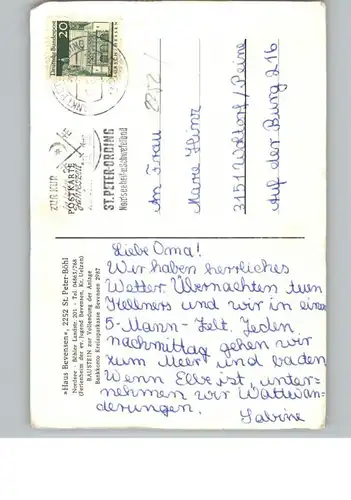 Deutsche Bundespost
20
2252
ZUR KUR
POSTKARTE
ST. PETER-ORDING
Nordseeheil- u. Schwefelbad
An Frau
Marie
3151 /Peine
Auf der Burg 216
»Haus Bevensen«, 2252 St. Peter-Böhl
Nordsee - Böhler Landstr. 201 - Tel. 04863/788
(Ferienheim der ev. Jugend Bevensen, Kr. Uelzen)
BAUSTEIN zur Vollendung der Anlage
Bankkonto: Kreissparkasse Bevensen 2987
Liebe Oma!
Wir haben herrliches
Wetter. Übernachten tun
Kellners und wir in einem
5-Mann-Zelt. Jeden
nachmittag gehen wir
zum Meer und baden
Wenn Ebbe ist, unter-
nehmen wir Wattwan-
derungen.
Sabine